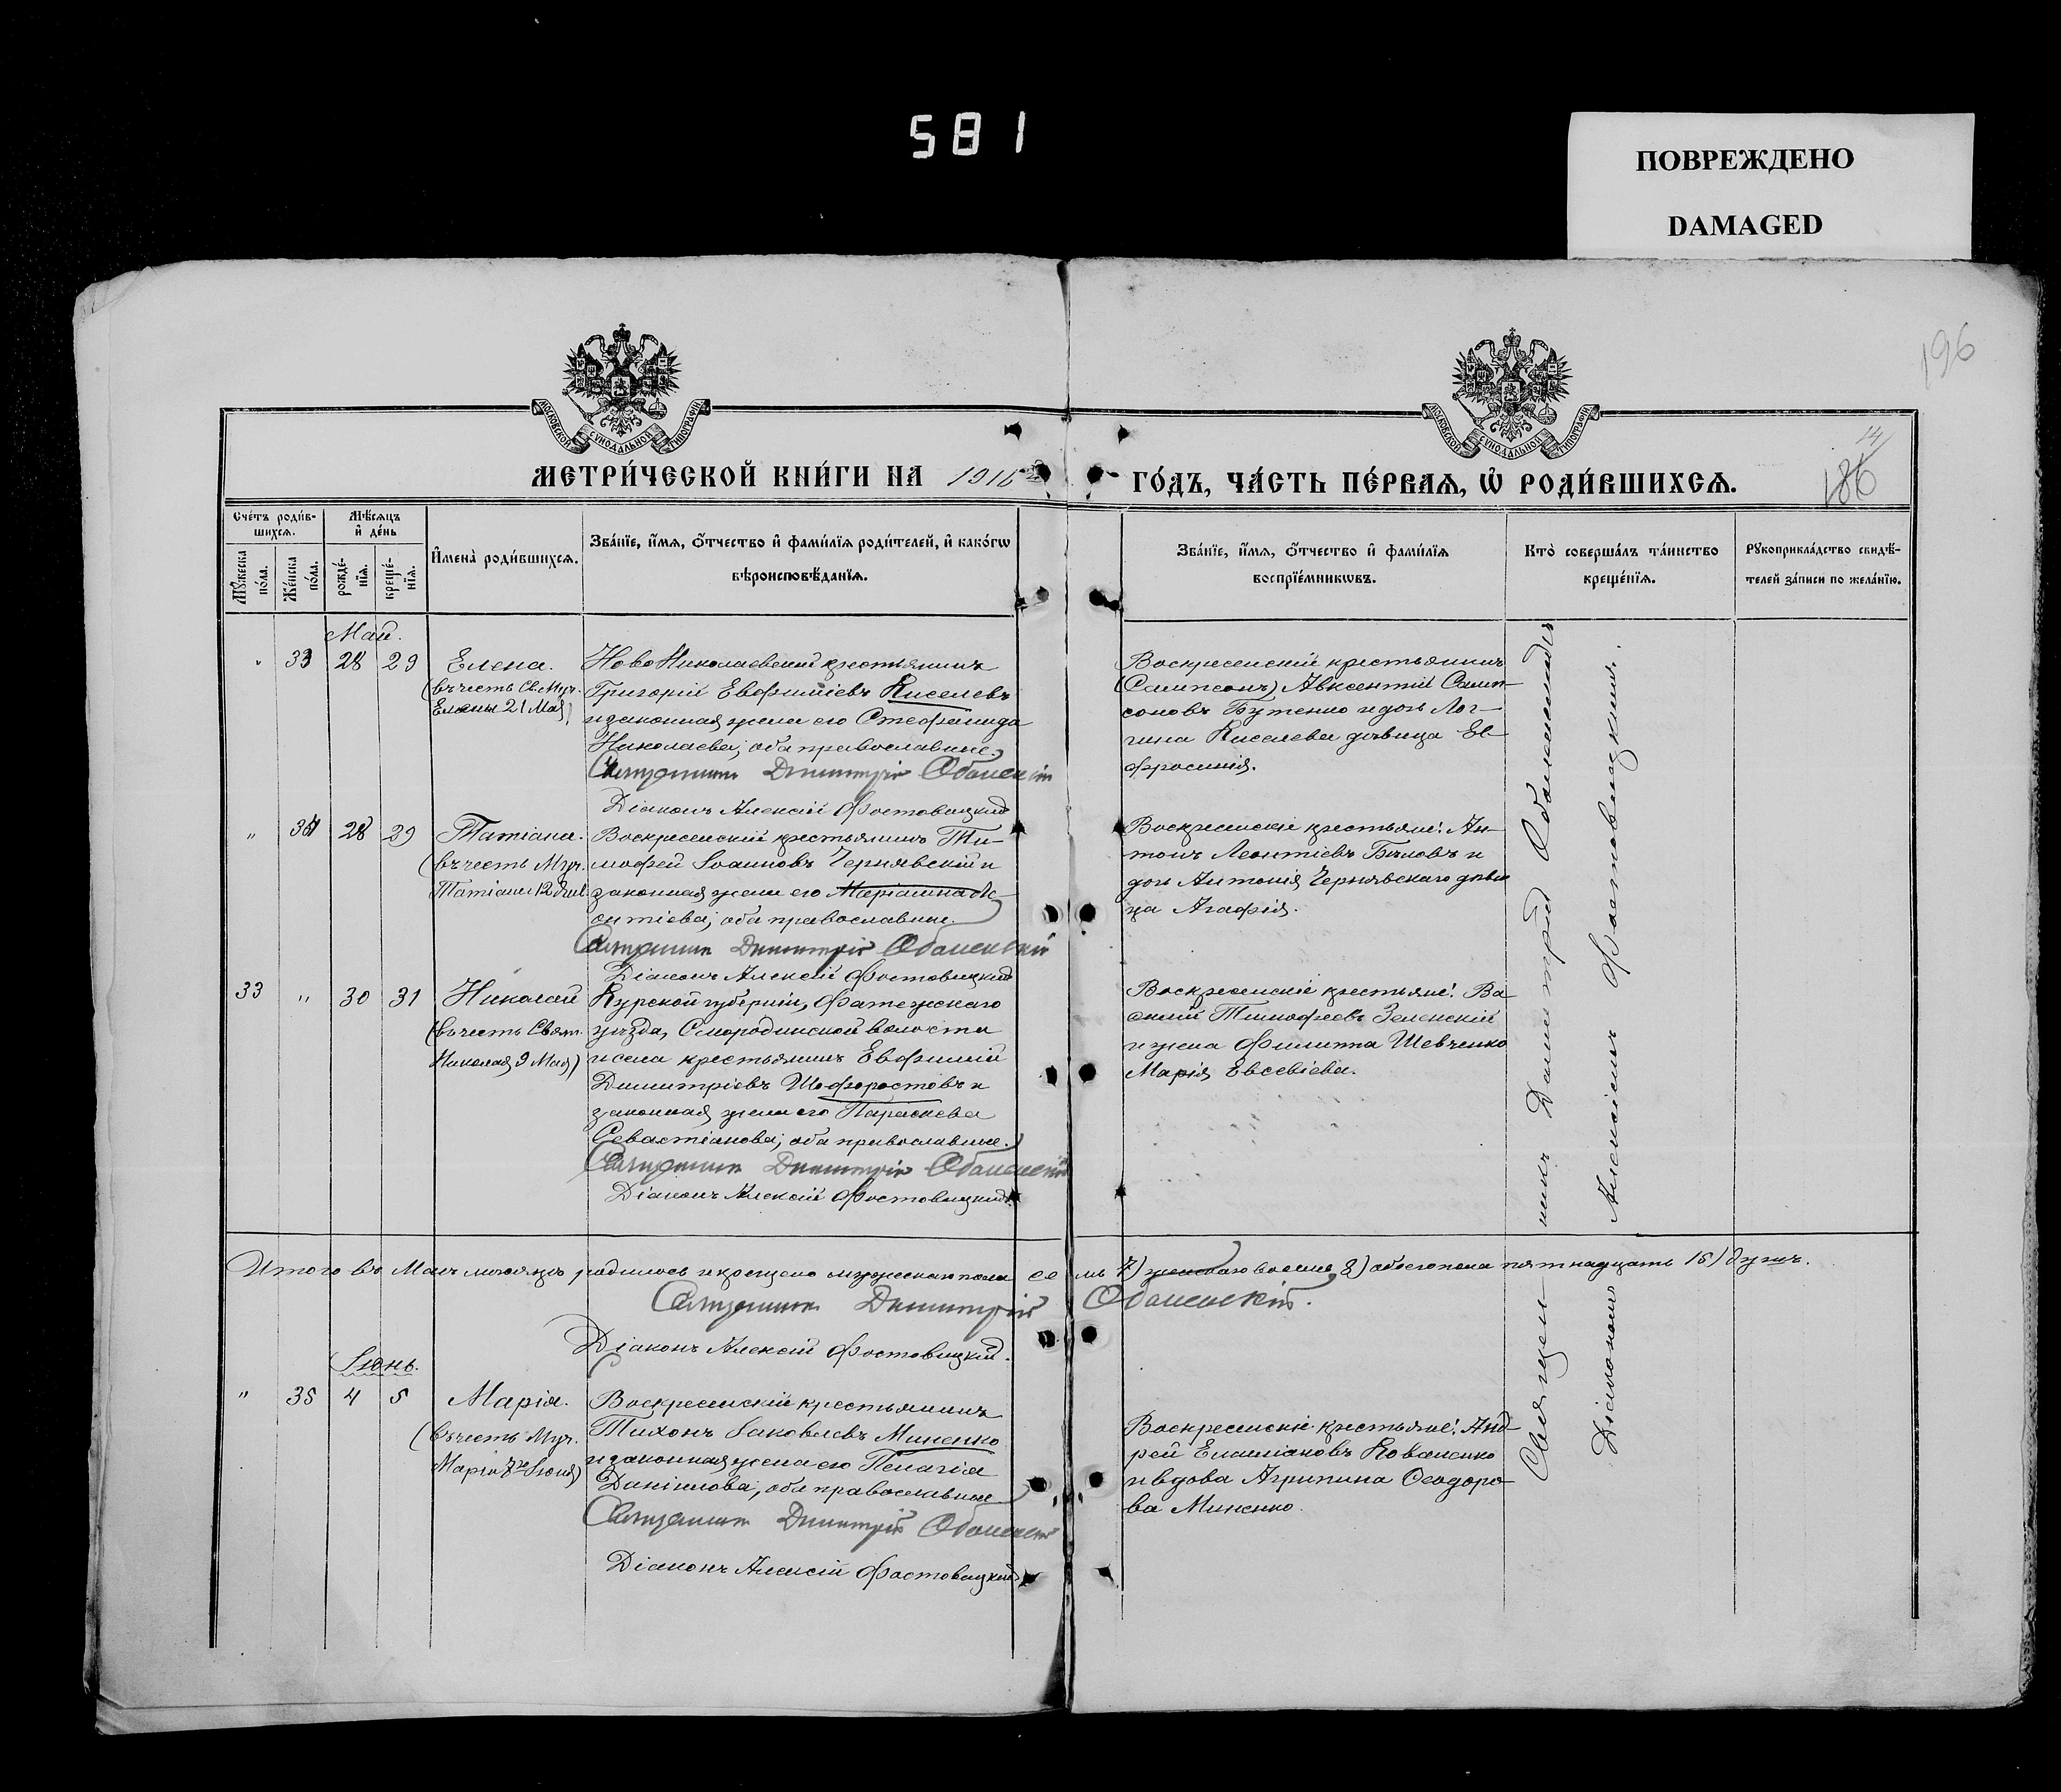 581
ПОВРЕЖДЕНО
DAMAGED
196
МОСКОВСКОЙ СѴНОДАЛЬНОЙ ТИПОГРАФІИ
МОСКОВСКОЙ СѴНОДАЛЬНОЙ ТИПОГРАФІИ
14
186
МЕТРИ́ЧЕСКОЙ КНИ́ГИ НА 1916 ГО́ДЪ, ЧА́СТЬ ПЕ́РВАЯ, Ѡ҆ РОДИ́ВШИХСЯ.
Сче́тъ роди́в-
шихся.
Мꙋ́жеска по́ла.
Же́нска по́ла.
Мѣ́сяцъ
и҆ де́нь
рожде́-
нїя.
креще́-
нїя.
И҆мена̀ роди́вшихся.
Зва́нїе, и҆́мя, ѻ҆́тчество и҆ фами́лїя роди́телей, и҆ како́гѡ
вѣроисповѣ́данїя.
Зва́нїе, и҆́мя, ѻ҆́тчество и҆ фами́лїя
воспрїе́мникѡвъ.
Кто̀ соверша́лъ та́инство
креще́нїя.
Рꙋкоприкла́дство свидѣ́-
телей за́писи по жела́нїю.
Май.
" 33 28 29
Елена.
(въ честь Св. Муч.
Елены 21 Мая)
Ново Николаевский крестьянинъ
Григорій Евфиміевъ Киселевъ
и законная жена его Стефанида
Николаева; оба православные.
Священникъ Димитрій
Діаконъ Алексій Фостовицкій
Воскресенскій крестьянинъ
(Сампсонъ) Авксентій Самп-
соновъ Бутенко и дочь Лог-
гина Киселева дѣвица Ев-
фросинія.
" 34 28 29
Татіана.
(въ честь Муч.
Татіаны 12 Янв.
Воскресенскій крестьянинъ Ти-
мофей Іоанновъ Чернявскій и
законная жена его Маріамна Ле-
онтіева; оба православные.
Священникъ Димитрій
Діаконъ Алексій Фостовицкій
Воскресенскіе крестьяне: Ан-
тонъ Леонтіевъ Бѣловъ и
дочь Антонія Чернявскаго дѣви
ца Агафія.
33 " 30 31
Николай
(въ честь Свят.
Николая 9 Мая)
Курской губерніи, Фатежскаго
уѣзда, Смородинской волости
и села крестьянинъ Евфимій
Димитріевъ Шофоростовъ и
законная жена его Параскева
Севастіанова; оба православные.
Священникъ Димитрій
Діаконъ Алексій Фостовицкій
Воскресенскіе крестьяне: Ва-
силій Тимофеевъ Зеленскій
и жена Филиппа Шевченко
Марія Евсевіева.
Итого въ Маѣ мѣсяцѣ родилось и крещено мужескаго пола семь 7) женскаго восемь 8) обоего пола пятнадцать 15) душъ.
Священникъ Димитрій
Діаконъ Алексій Фостовицкій.
Іюнь.
" 35 4 5
Марія.
(въ честь Муч.
Маріи 7го Іюня)
Воскресенскій крестьянинъ
Тихонъ Іаковлевъ Миненко
и законная жена его Пелагія
Даніилова, оба православные
Священникъ Димитрій
Діаконъ Алексій Фостовицкій
Воскресенскіе крестьяне: Анд-
рей Емиліановъ Коваленко
и вдова Агрипина Ѳеодоро-
ва Миненко.
Священникъ Димитрій
Діакономъ Алексіемъ Фостовицкимъ.